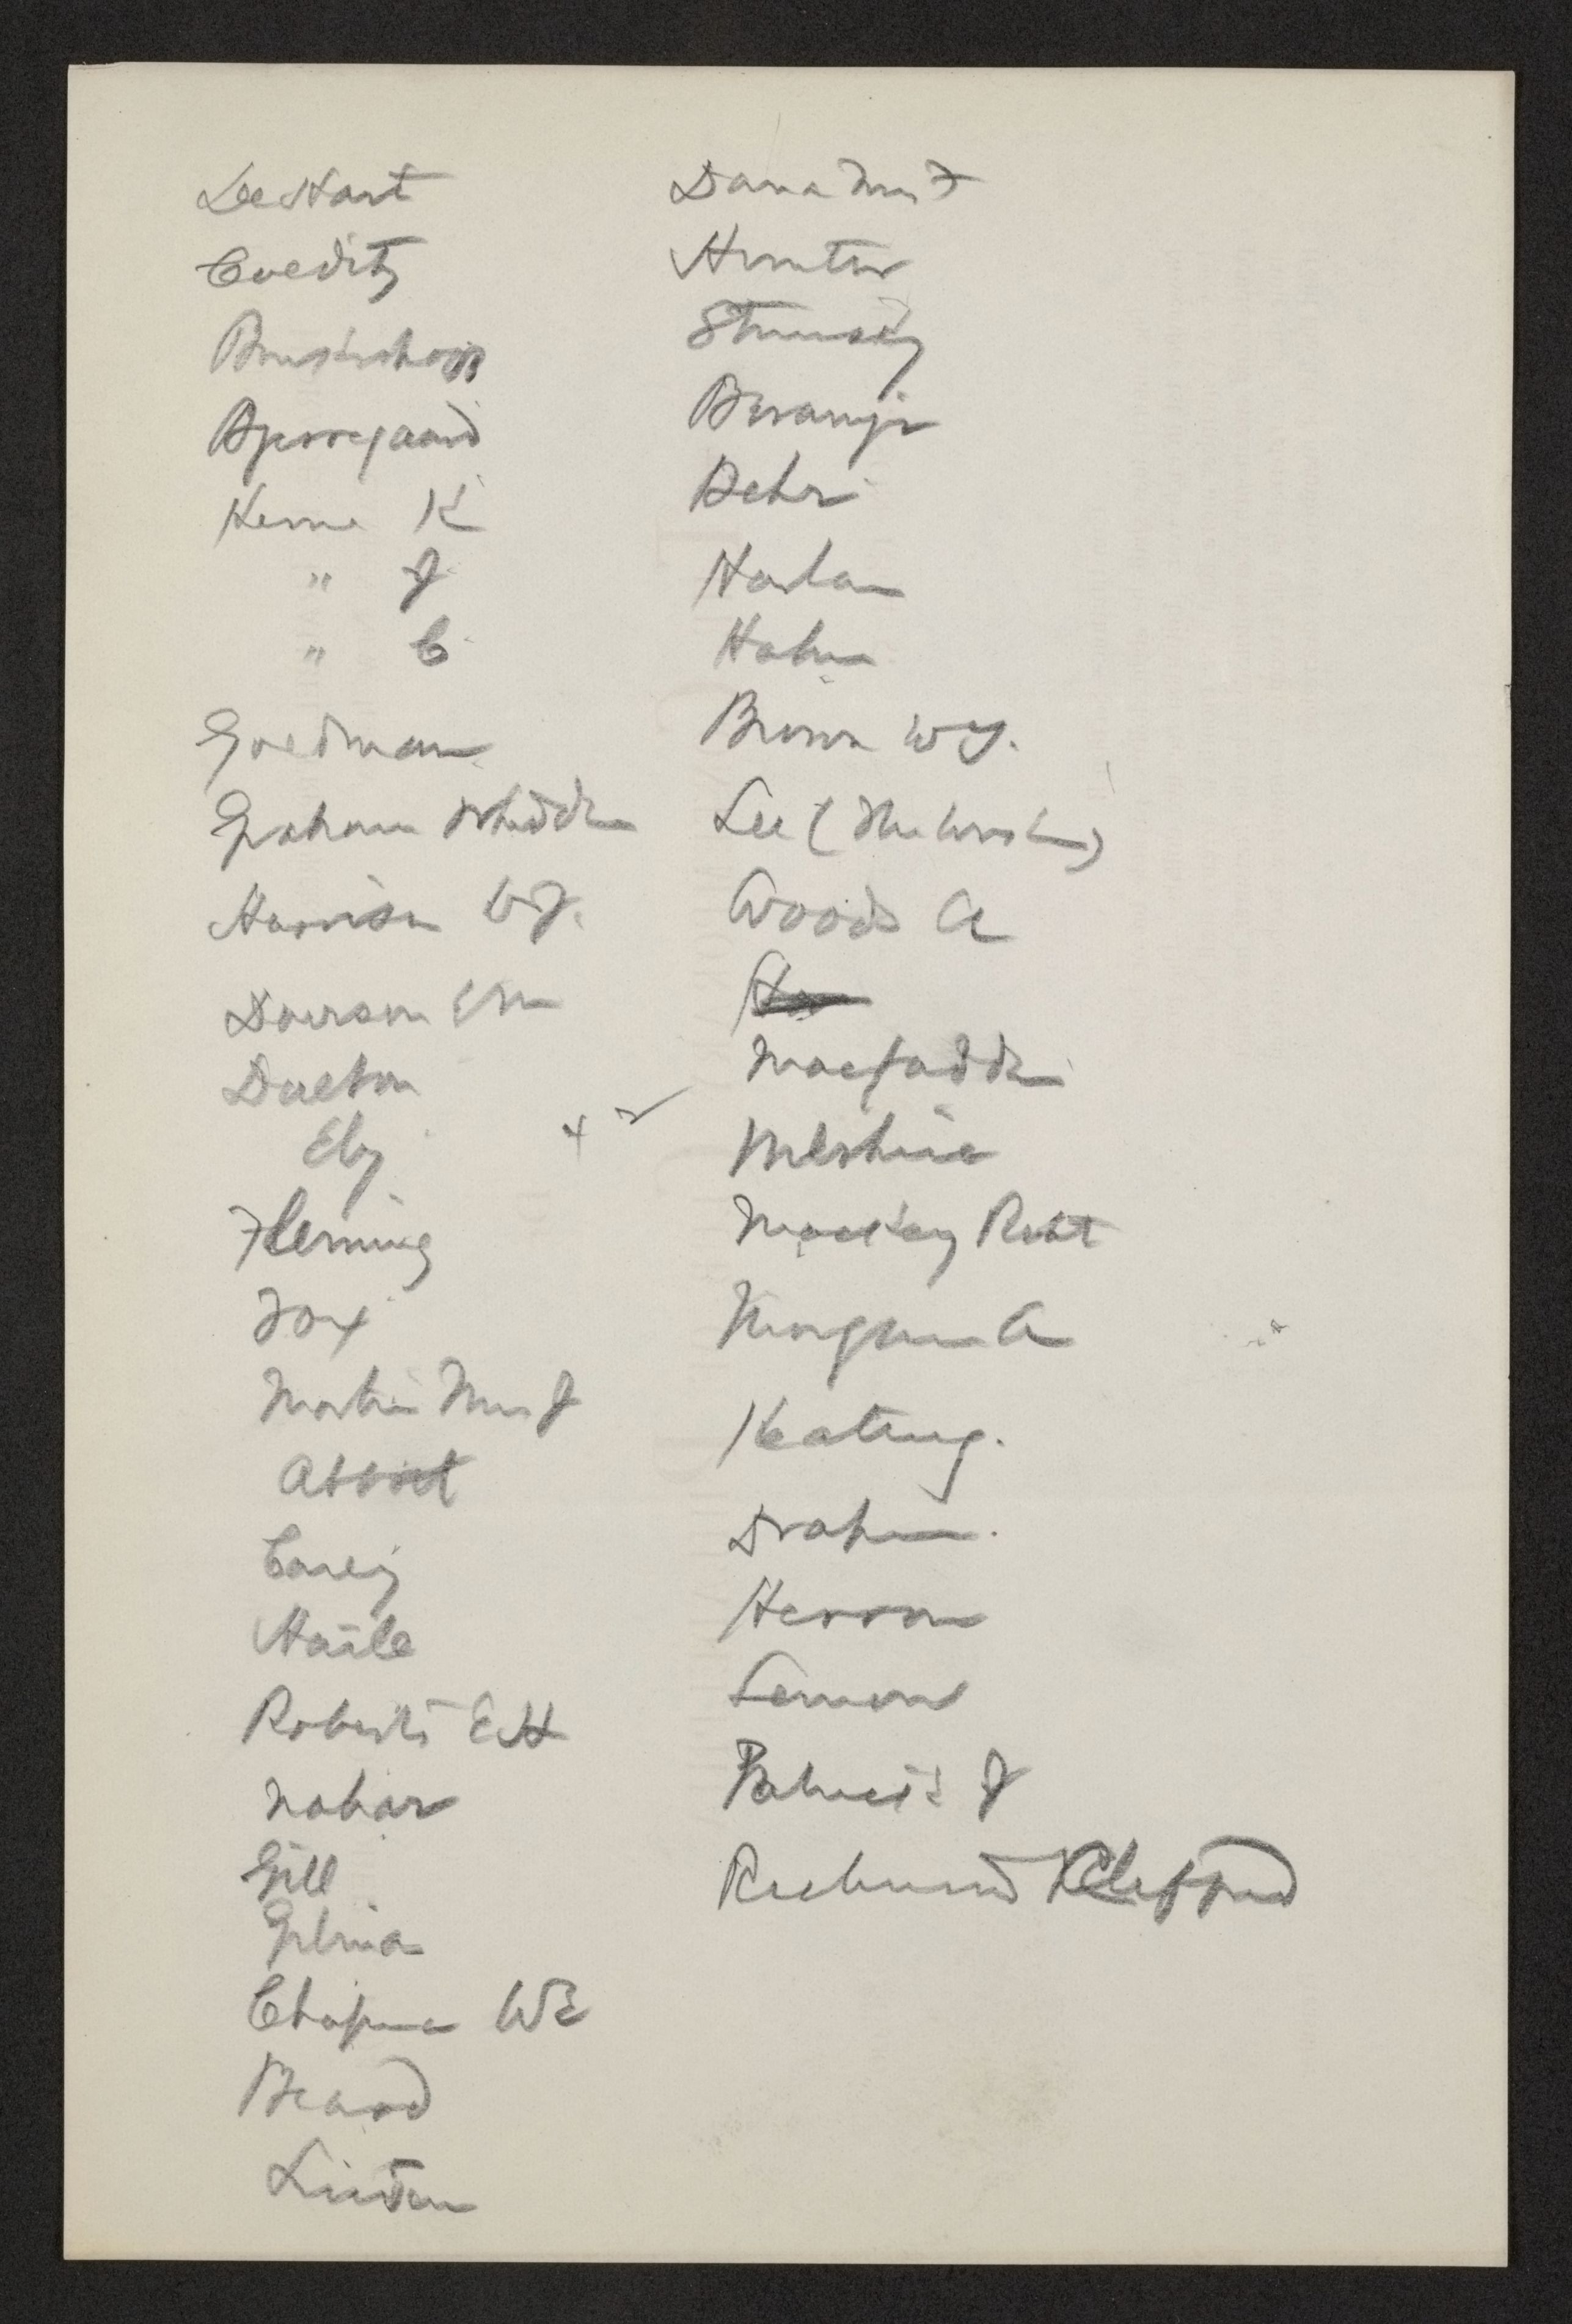 Lee Hart
Coedity
Bjerregaard
Kerne K
" J
" C
Goedman
Graham
Harrison W J.
Dawson
Dalton
Eby
Fleming
Fox
Martin Mrs J
Abbott
Carey
Haile
Roberts E H
Nabar
Gill
Gilman
Chapman W E
Beard
Linton
Dana Mrs F
Hunter
Strunsky
Beranger
Behr
Harlan
Hahn
Brown W J.
Lee
Woods A
Macfadden
Wilshire
Mackay Robt
Kingman A
Keating.
Draper.
Herron
Lemon
Patrick J
Richmond Clifford